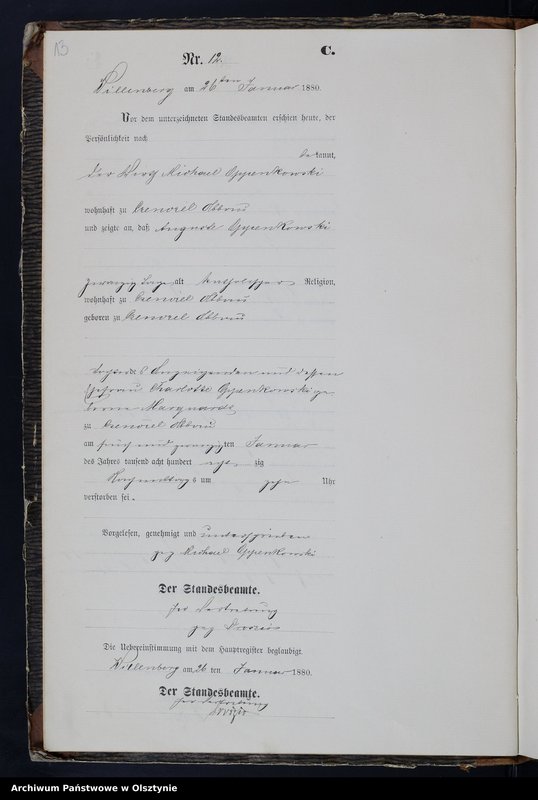 13
C.
Nr. 12.
Willenberg am 26ten Januar 1880.
Vor dem unterzeichneten Standesbeamten erschien heute, der
Persönlichkeit nach
bekannt,
der Michael Oppenkowski
wohnhaft zu
und zeigte an, daß Auguste Oppenkowski
zwanzig Tage alt Religion,
wohnhaft zu
geboren zu
Tochter des Anzeigenden und dessen
Ehefrau Charlotte Oppenkowski ge
borene Marquardt
zu
am fünf und zwanzigten Januar
des Jahres tausend acht hundert acht zig
Nachmittags um Uhr
verstorben sei.
Vorgelesen, genehmigt und unterschrieben
gez Michael Oppenkowski
Der Standesbeamte.
In Vertretung
gez
Die Uebereinstimmung mit dem Hauptregister beglaubigt
Willenberg am 26 ten Januar 1880.
Der Standesbeamte.
In Vertretung
Archiwum Państwowe w Olsztynie